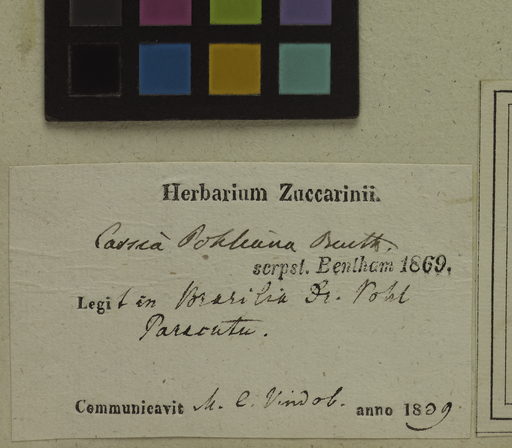 Herbarium Zuccarinii.
Cassia Pohleana Benth.
scrpst. Bentham 1869.
Legit in Brasilia Dr. Pohl
Paracutu.
Communicavit M. C. Vindob. anno 1839